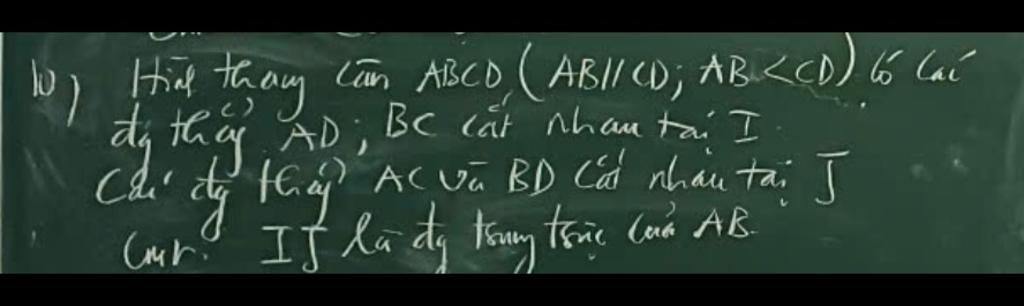 10) Hình thang cân ABCD (AB//CD; AB<CD) có các
đg thẳg AD; BC cắt nhau tại I.
Các đg thẳg AC và BD cắt nhau tại J
Cmr. IJ là đg trung trực của AB.